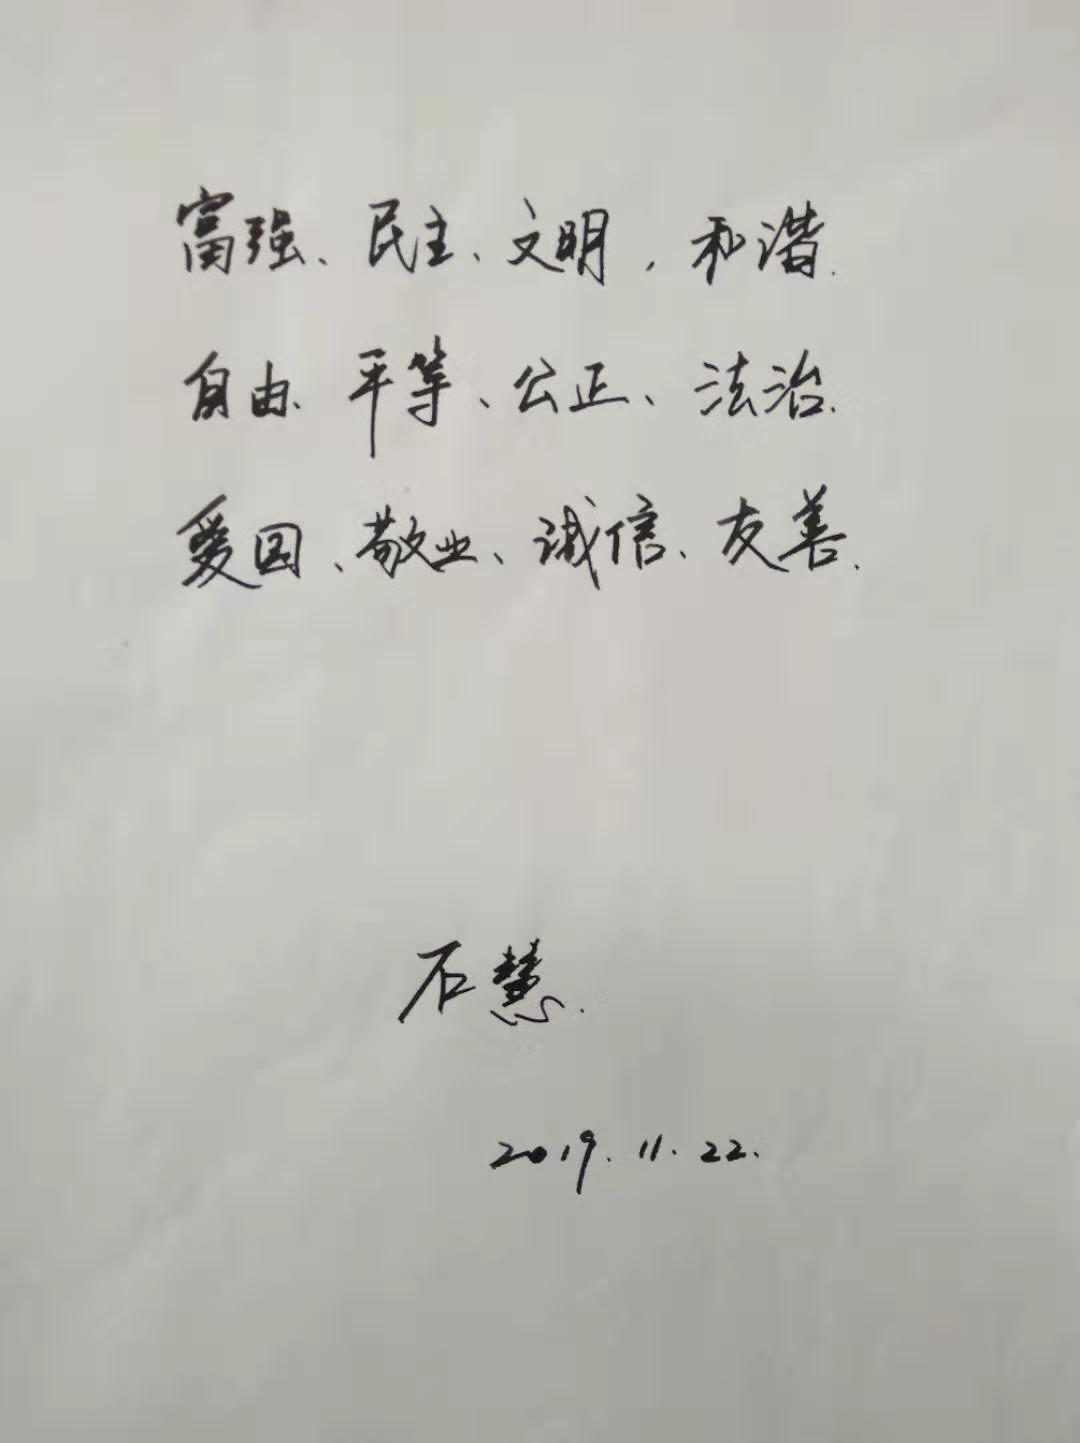 富强、民主、文明,和谐.
自由、平等、公正、法治.
爱国、敬业、诚信、友善.
石慧.
2019.11.22.